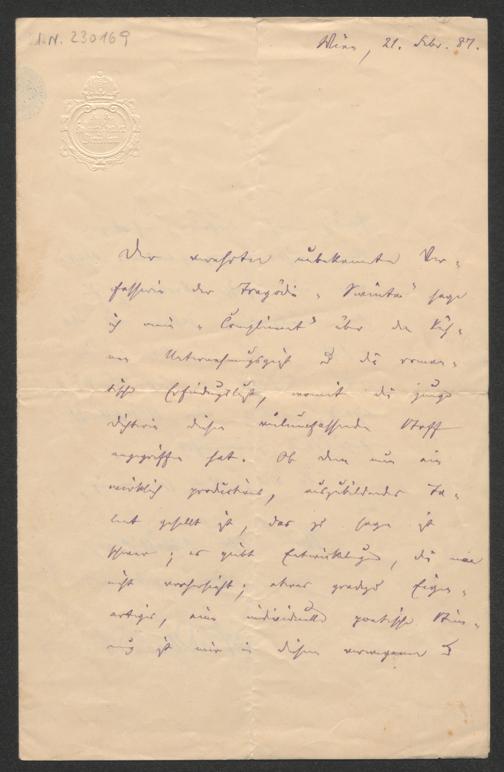 I.N. 230169
Wien, 21. Febr. 87.
Der verehrten unbekannten Ver-
fasserin der Tragödie „ " sage
ich mein „Compliment" über den küh-
nen Unternehmungsgeist u die roman-
tische Erfindungslust, womit die junge
Dichterin diesen vielumfassenden Stoff
angegriffen hat. Ob dem nun ein
wirklich productives, auszubildendes Ta-
lent gesellt ist, das zu sagen ist
schwer; es giebt Entwicklungen, die man
nicht vorhersieht; etwas gradezu Eigen-
artiges, eine individuelle poetische Stim-
mung ist mir in diesen verwegenen u